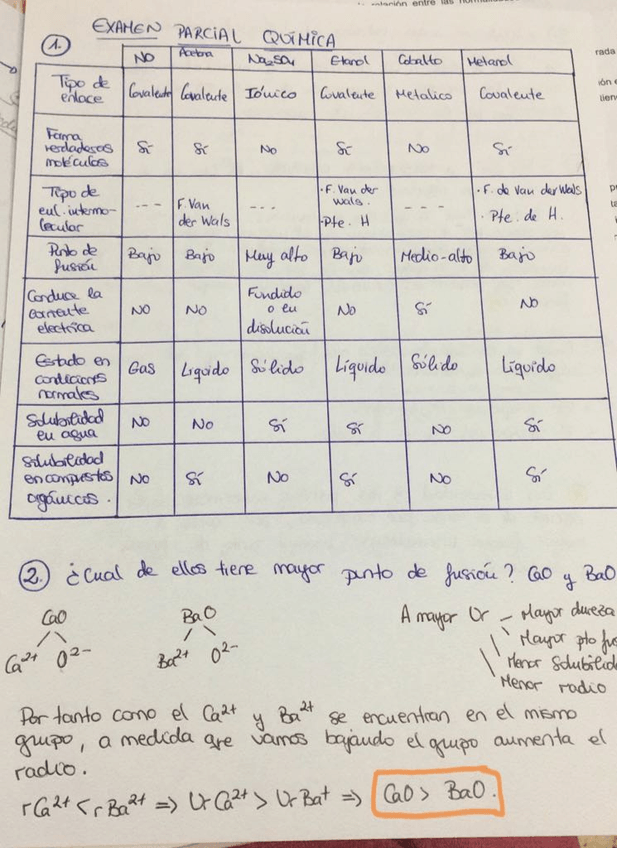 elación entre las
EXAMEN PARCIAL QUÍMICA
1.
NO Acetona Na₂SO₄ Etanol Cobalto Metanol
rada
Tipo de enlace Covalente Covalente Iónico Covalente Metalico Covalente
ión e
Forma verdaderas moléculas Sí Sí No Sí No Sí
Tipo de enl. intermolecular --- F. Van der Wals --- · F. Van der Wals. · Pte. H --- · F. de Van der Wals · Pte. de H.
Punto de fusión Bajo Bajo Muy alto Bajo Medio-alto Bajo
Conduce la corriente electrica NO NO Fundido o en disolución No Sí NO
Estado en condiciones normales Gas Liquido Sólido Líquido Sólido Líquido
Solubilidad en agua NO No Sí Sí No Sí
Solubilidad en compuestos orgánicos. NO Sí No Sí No Sí
2. ¿Cual de ellos tiene mayor punto de fusión? CaO y BaO
CaO BaO A mayor Ur - Mayor dureza
Ca²⁺ O²⁻ Ba²⁺ O²⁻ Mayor pto fus
Menor Solubilida
Menor radio
Por tanto como el Ca²⁺ y Ba²⁺ se encuentran en el mismo
grupo, a medida que vamos bajando el grupo aumenta el
radio.
rCa²⁺ < rBa²⁺ ⇒ UrCa²⁺ > UrBa⁺ ⇒ CaO > BaO.